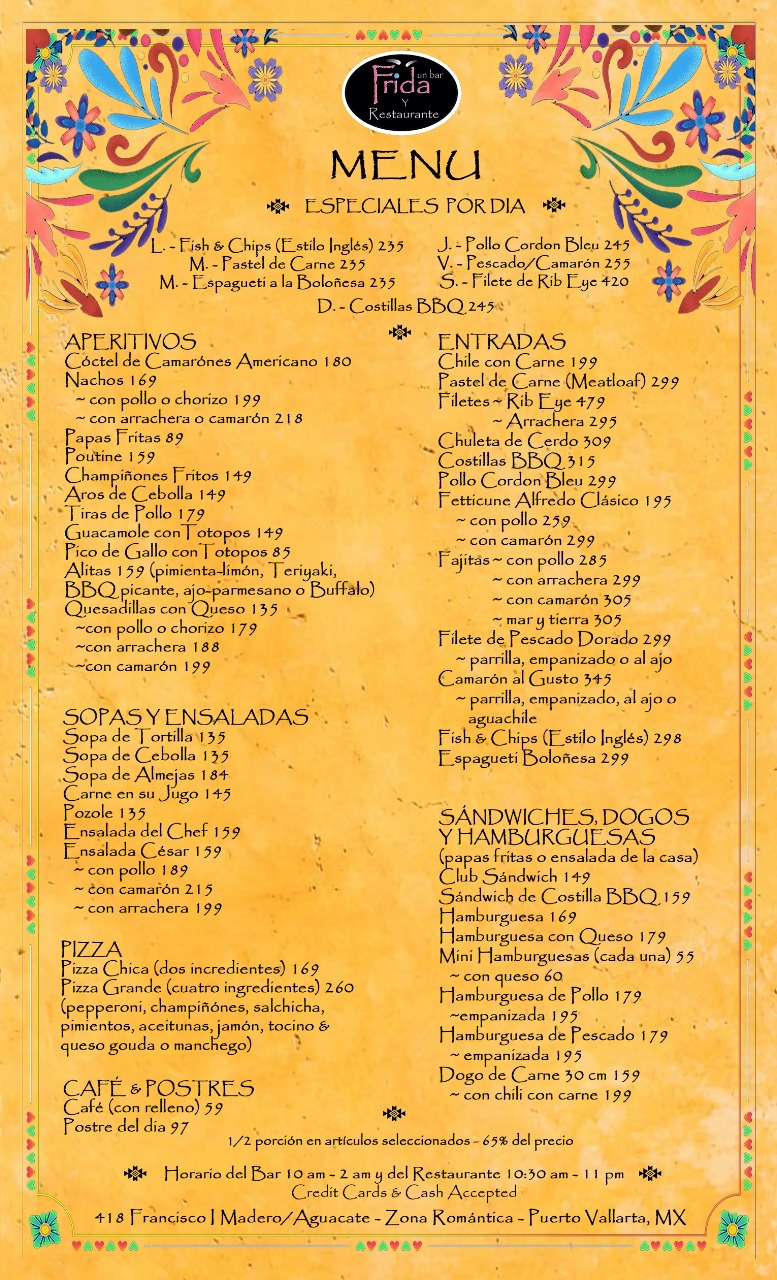 Frida
un bar
Y
Restaurante
MENU
ESPECIALES POR DIA
L. - Fish & Chips (Estilo Inglés) 235
M. - Pastel de Carne 235
M. - Espagueti a la Boloñesa 235
J. - Pollo Cordon Bleu 245
V. - Pescado/Camarón 255
S. - Filete de Rib Eye 420
D. - Costillas BBQ 245
APERITIVOS
Cóctel de Camarónes Americano 180
Nachos 169
~ con pollo o chorizo 199
~ con arrachera o camarón 218
Papas Fritas 89
Poutine 159
Champiñones Fritos 149
Aros de Cebolla 149
Tiras de Pollo 179
Guacamole con Totopos 149
Pico de Gallo con Totopos 85
Alitas 159 (pimienta-limón, Teriyaki,
BBQ picante, ajo-parmesano o Buffalo)
Quesadillas con Queso 135
~con pollo o chorizo 179
~con arrachera 188
~con camarón 199
SOPAS Y ENSALADAS
Sopa de Tortilla 135
Sopa de Cebolla 135
Sopa de Almejas 184
Carne en su Jugo 145
Pozole 135
Ensalada del Chef 159
Ensalada César 159
~ con pollo 189
~ con camarón 215
~ con arrachera 199
PIZZA
Pizza Chica (dos incredientes) 169
Pizza Grande (cuatro ingredientes) 260
(pepperoni, champiñónes, salchicha,
pimientos, aceitunas, jamón, tocino &
queso gouda o manchego)
CAFÉ & POSTRES
Café (con relleno) 59
Postre del dia 97
ENTRADAS
Chile con Carne 199
Pastel de Carne (Meatloaf) 299
Filetes ~ Rib Eye 479
~ Arrachera 295
Chuleta de Cerdo 309
Costillas BBQ 315
Pollo Cordon Bleu 299
Fetticune Alfredo Clásico 195
~ con pollo 259
~ con camarón 299
Fajitas ~ con pollo 285
~ con arrachera 299
~ con camarón 305
~ mar y tierra 305
Filete de Pescado Dorado 299
~ parrilla, empanizado o al ajo
Camarón al Gusto 345
~ parrilla, empanizado, al ajo o
aguachile
Fish & Chips (Estilo Inglés) 298
Espagueti Boloñesa 299
SÁNDWICHES, DOGOS
Y HAMBURGUESAS
(papas fritas o ensalada de la casa)
Club Sándwich 149
Sándwich de Costilla BBQ 159
Hamburguesa 169
Hamburguesa con Queso 179
Mini Hamburguesas (cada una) 55
~ con queso 60
Hamburguesa de Pollo 179
~empanizada 195
Hamburguesa de Pescado 179
~ empanizada 195
Dogo de Carne 30 cm 159
~ con chili con carne 199
1/2 porción en artículos seleccionados - 65% del precio
Horario del Bar 10 am - 2 am y del Restaurante 10:30 am - 11 pm
Credit Cards & Cash Accepted
418 Francisco I Madero/Aguacate - Zona Romántica - Puerto Vallarta, MX